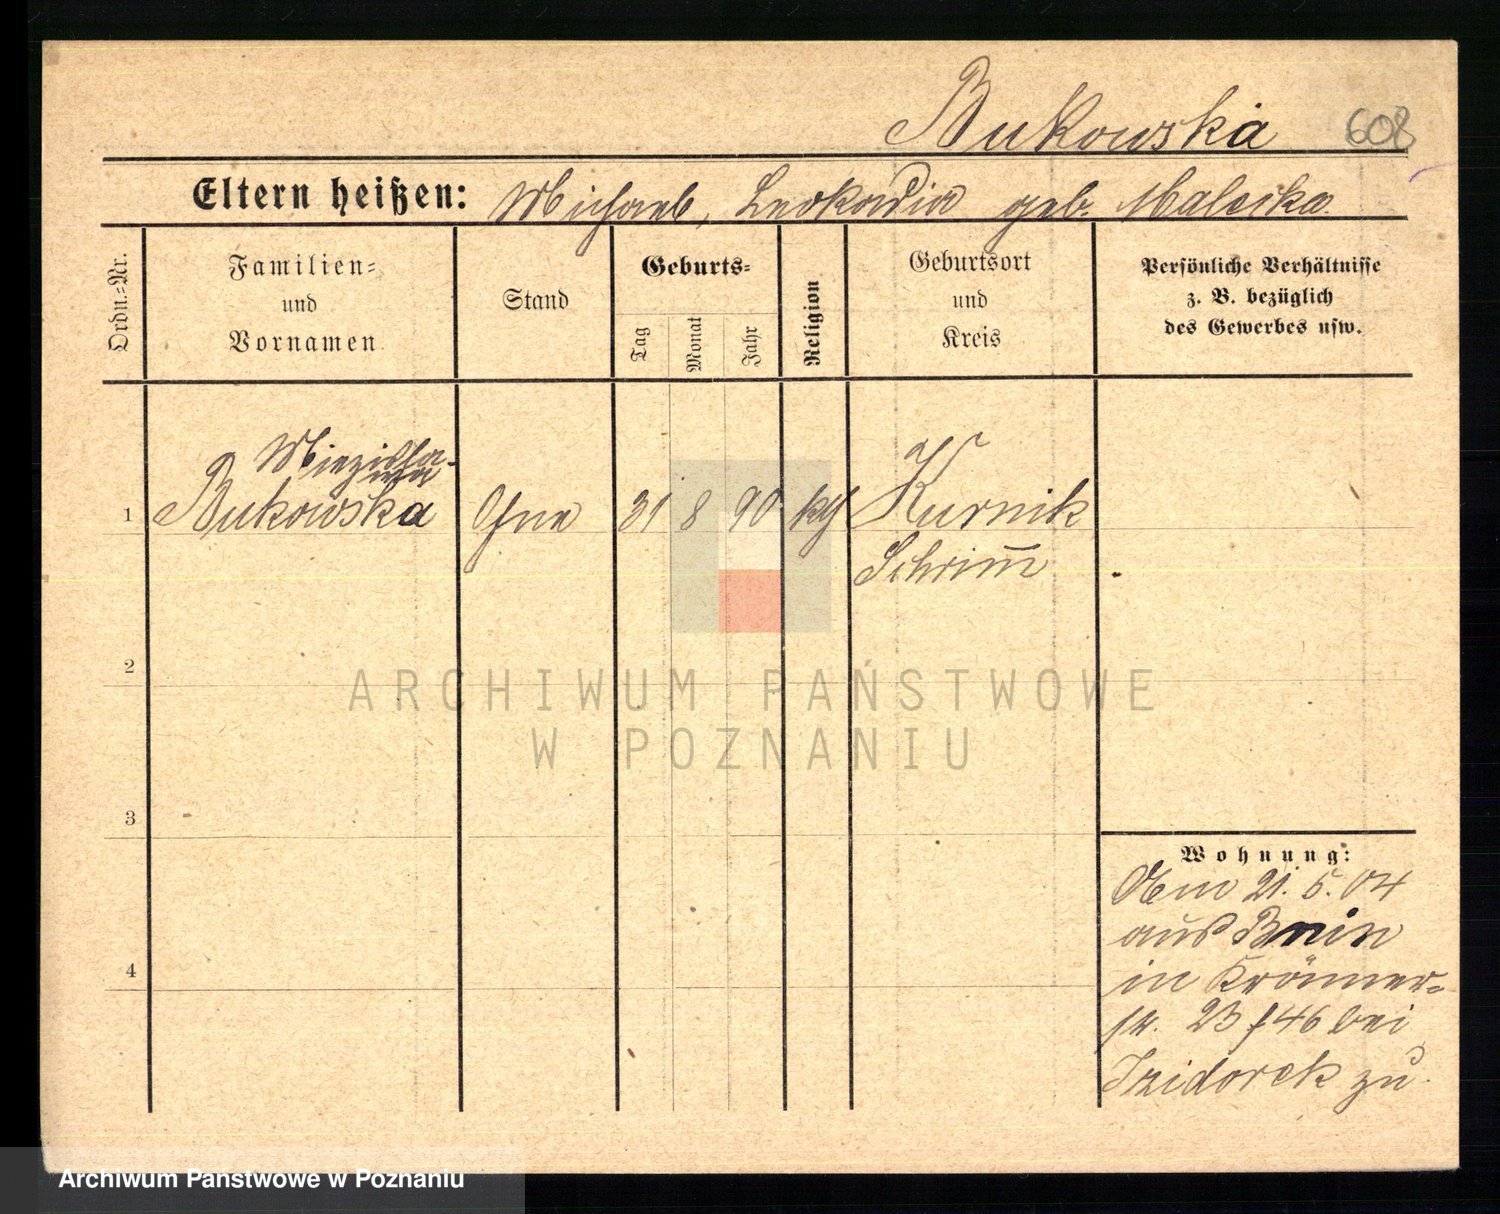 Bukowska 608
Eltern heißen: Michael, Leokadia geb. Malecka
Ordn.-Nr.
Familien-
und
Vornamen
Stand
Geburts-
Tag
Monat
Jahr
Religion
Geburtsort
und
Kreis
Persönliche Verhältnisse
z. B. bezüglich
des Gewerbes usw.
Miezisła-
wa
1 Bukowska Ohne 31 8 90 kth Kurnik
Schrim̄
2
ARCHIWUM PAŃSTWOWE
W POZNANIU
3
4
Wohnung:
Am 21. 5. 04
aus Bnin
in Krämer-
str. 23 f 46 bei
Izidorek zu
Archiwum Państwowe w Poznaniu